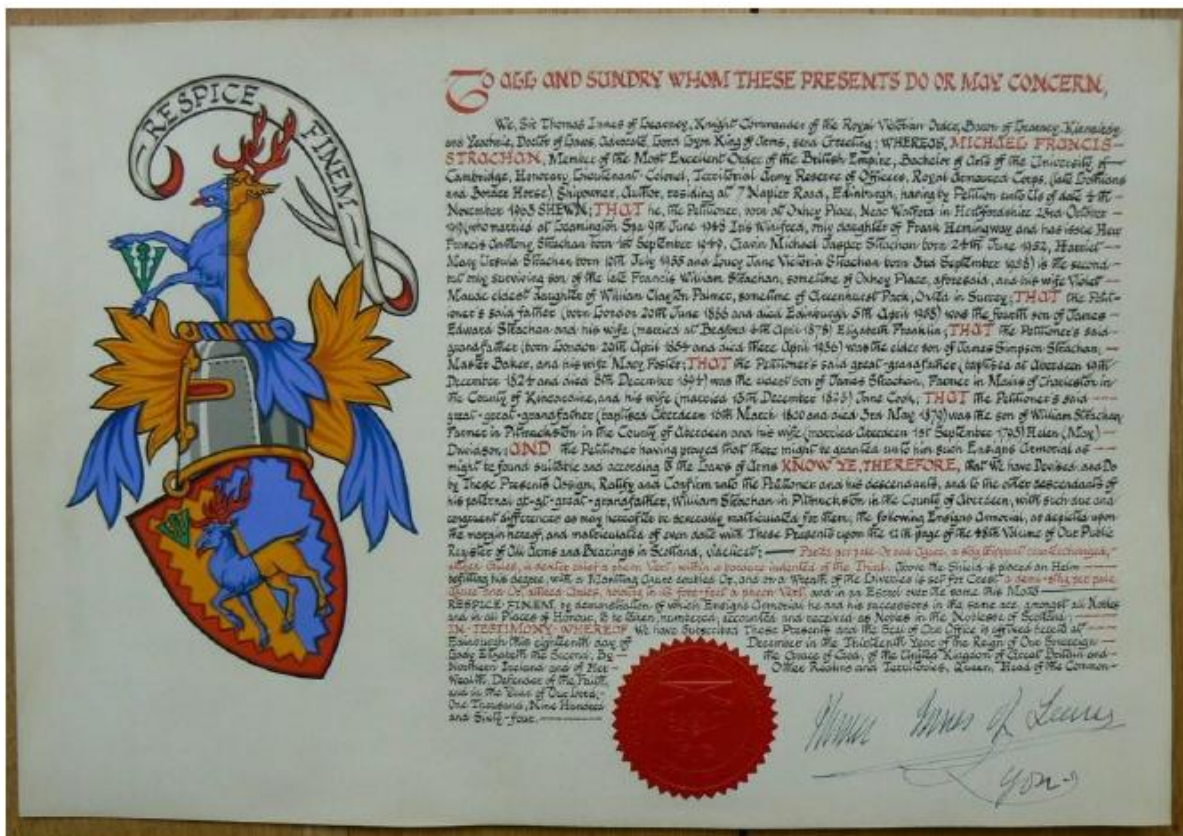 RESPICE FINEM
TO ALL AND SUNDRY WHOM THESE PRESENTS DO OR MAY CONCERN,
We, Sir Thomas Innes of Learney, Knight Commander of the Royal Victorian Order, Baron of Learney, Kinnairdy
and Yeochrie, Doctor of Laws, Advocate, Lord Lyon King of Arms, send Greeting: WHEREAS, MICHAEL FRANCIS
STRACHAN, Member of the Most Excellent Order of the British Empire, Bachelor of Arts of the University of
Cambridge, Honorary Lieutenant-Colonel, Territorial Army Reserve of Officers, Royal Armoured Corps, (late Lothians
and Border Horse) Shipowner, Author, residing at 7 Napier Road, Edinburgh, having by Petition unto Us of date 4th
November 1963 SHEWN; THAT he, the Petitioner, born at Oxhey Place, Near Watford in Hertfordshire 23rd October
(who married at Leamington Spa 9th June 1948 Iris Winifred, only daughter of Frank Hemingway and has issue Heir
Francis Anthony Strachan born 1st September 1949, Gavin Michael Jasper Strachan born 24th June 1952, Harriet
Mary Ursula Strachan born 10th July 1955 and Lucy Jane Victoria Strachan born 3rd September 1958) is the second
but only surviving son of the late Francis William Strachan, sometime of Oxhey Place, aforesaid, and his wife Violet
Maude eldest daughter of William Clayton Palmer, sometime of Greenhurst Park, in Surrey; THAT the Petit-
ioner's said father (born London 20th June 1886 and died Edinburgh 5th April 1958) was the fourth son of James
Edward Strachan and his wife (married at Bedford 6th April 1878) Elizabeth Franklin; THAT the Petitioner's said
grandfather (born London 20th April 1854 and died there April 1936) was the elder son of James Simpson Strachan,
Master Baker, and his wife Mary Foster; THAT the Petitioner's said great-grandfather (baptised at Aberdeen 19th
December 1824 and died 8th December 1894) was the eldest son of James Strachan, Farmer in Mains of Charleston in
the County of Kincardine, and his wife (married 13th December 1823) Jane Cook; THAT the Petitioner's said
great-great-grandfather (baptised Aberdeen 16th March 1800 and died 3rd May 1879) was the son of William Strachan,
Farmer in Pitmuckston in the County of Aberdeen and his wife (married Aberdeen 1st September 1793) Helen (May)
Davidson; AND the Petitioner having prayed that there might be granted unto him such Ensigns Armorial as
might be found suitable and according to the Laws of Arms KNOW YE, THEREFORE, that We have Devised, and Do
by These Presents Assign, Ratify and Confirm unto the Petitioner and his descendants, and to the other descendants of
his paternal gt-gt-great-grandfather, William Strachan in Pitmuckston in the County of Aberdeen, with such due and
congruent differences as may hereafter be severally matriculated for them, the following Ensigns Armorial, as depicted upon
the margin hereof, and matriculated of even date with These Presents upon the 12th page of the 48th Volume of Our Public
Register of All Arms and Bearings in Scotland, videlicet: Parted per pale Or and Azure, a stag trippant counterchanged,
attired Gules, in dexter chief a pheon Vert, within a bordure indented of the Third. Above the Shield is placed an Helm
befitting his degree, with a Mantling Azure doubled Or, and on a Wreath of the Liveries is set for Crest a demi-stag per pale
Azure and Or, attired Gules, holding in its fore-feet a pheon Vert, and in an Escrol over the same this Motto
RESPICE FINEM, by demonstration of which Ensigns Armorial he and his successors in the same are, amongst all Nobles
and in all Places of Honour, to be taken, numbered, accounted and received as Nobles in the Noblesse of Scotland;
IN TESTIMONY WHEREOF We have Subscribed These Presents and the Seal of Our Office is affixed hereto at
Edinburgh this eighteenth day of December in the Thirteenth Year of the Reign of Our Sovereign
Lady Elizabeth the Second, by the Grace of God, of the United Kingdom of Great Britain and
Northern Ireland and of Her Other Realms and Territories, Queen, Head of the Common-
wealth, Defender of the Faith,
and in the Year of Our Lord,
One Thousand, Nine Hundred
and Sixty-four.
Thomas Innes of Learney
Lyon